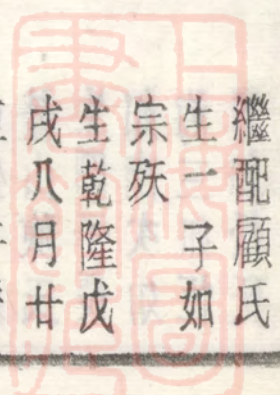 繼配顧氏
生一子如
宗殀
生乾隆戊
戌八月廿